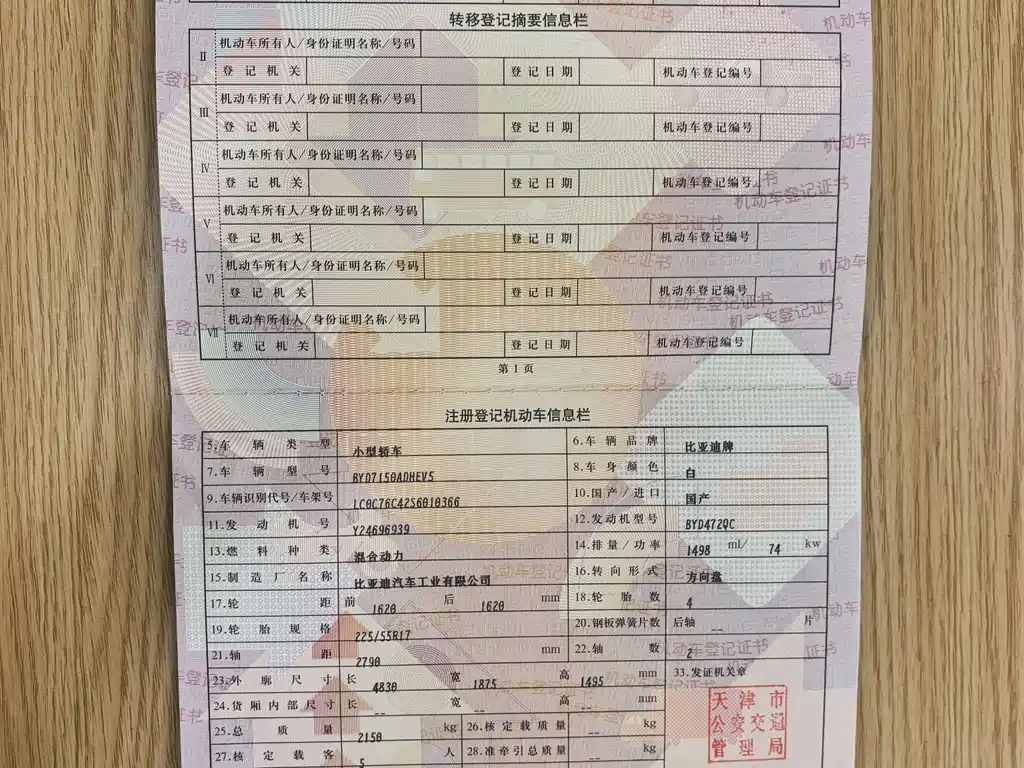 转移登记摘要信息栏
Ⅱ 机动车所有人/身份证明名称/号码
登记机关 登记日期 机动车登记编号
Ⅲ 机动车所有人/身份证明名称/号码
登记机关 登记日期 机动车登记编号
Ⅳ 机动车所有人/身份证明名称/号码
登记机关 登记日期 机动车登记编号
Ⅴ 机动车所有人/身份证明名称/号码
登记机关 登记日期 机动车登记编号
Ⅵ 机动车所有人/身份证明名称/号码
登记机关 登记日期 机动车登记编号
Ⅶ 机动车所有人/身份证明名称/号码
登记机关 登记日期 机动车登记编号
第1页
注册登记机动车信息栏
5.车辆类型 小型轿车 6.车辆品牌 比亚迪牌
7.车辆型号 BYD7150ADHEV5 8.车身颜色 白
9.车辆识别代号/车架号 LC0C76C42S6010366 10.国产/进口 国产
11.发动机号 Y24696939 12.发动机型号 BYD472QC
13.燃料种类 混合动力 14.排量/功率 1498 ml/ 74 kw
15.制造厂名称 比亚迪汽车工业有限公司 16.转向形式 方向盘
17.轮距 前 1620 后 1620 mm 18.轮胎数 4
19.轮胎规格 225/55R17 20.钢板弹簧片数 后轴 -- 片
21.轴距 2790 mm 22.轴数 2
23.外廓尺寸 长 4830 宽 1875 高 1495 mm 33.发证机关章
24.货厢内部尺寸 长 -- 宽 -- 高 -- mm
25.总质量 2150 kg 26.核定载质量 -- kg
27.核定载客 5 人 28.准牵引总质量 -- kg
天津市
公安交通
管理局